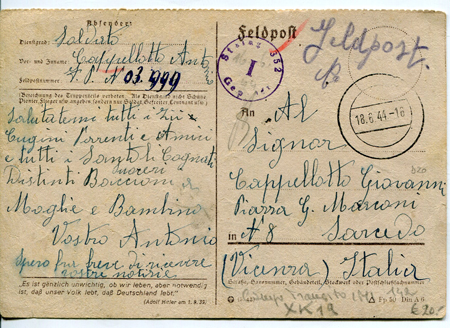 Absender:
Dienstgrad: Soldato
Vor- und Zuname: Cappellotto Anto
nio
Feldpostnummer: F. P. N° 03.999
(Bezeichnung des Truppenteils verboten.
Salutatemi tutti i Zii
Cugini Parenti e Amici
e tutti i Santoli Cognati
Suoceri
Distinti Baccioni a
Moglie e Bambino
Vostro Antonio
Spero fra breve di ricevere
vostre notizie
„Es ist gänzlich unwichtig, ob wir leben, aber notwendig
ist, daß unser Volk lebt, daß Deutschland lebt."
(Adolf Hitler am 1. 9. 39)
Feldpost
Feldpost.
Stalag 352
I
Geprüft
18.6.44-16
An Al
Signor
Cappellotto Giovanni
Piazza G. Marconi
in N° 8 Sarcedo
(Vicenza) Italia
Straße, Hausnummer, Gebäudeteil, Stockwerk oder Postschließfachnummer
Din A 6
XK12
€ 20.